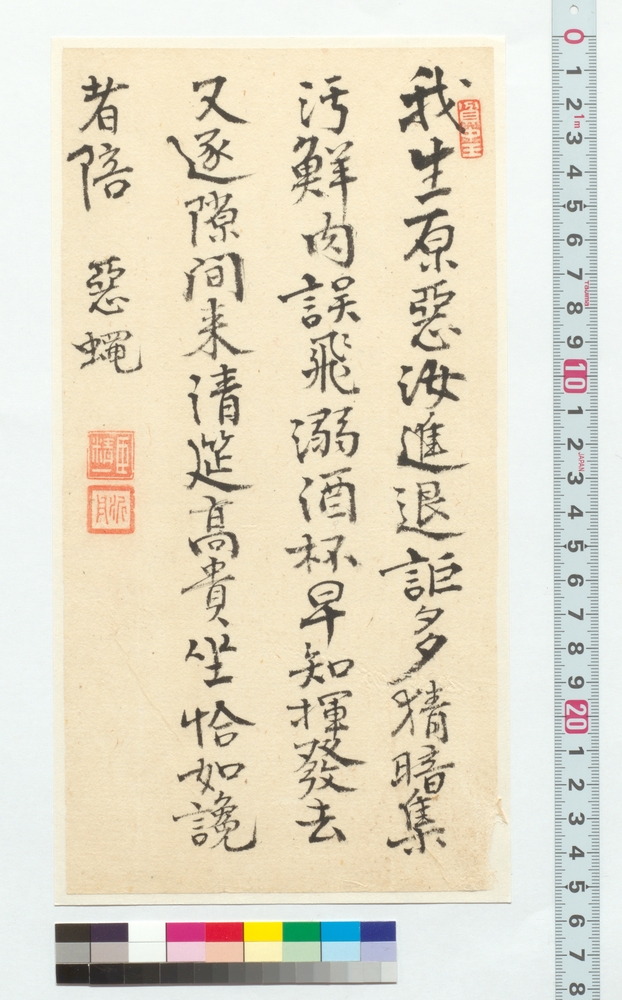 我生原惡汝進退詎多猜暗集
污鮮肉誤飛溺酒杯早知揮發去
又逐隙間来清筵高貴坐恰如讒
者陪 惡蝿
0 1 2 3 4 5 6 7 8 9 10 1 2 3 4 5 6 7 8 9 20 1 2 3 4 5 6 7 8
1m
JAPAN